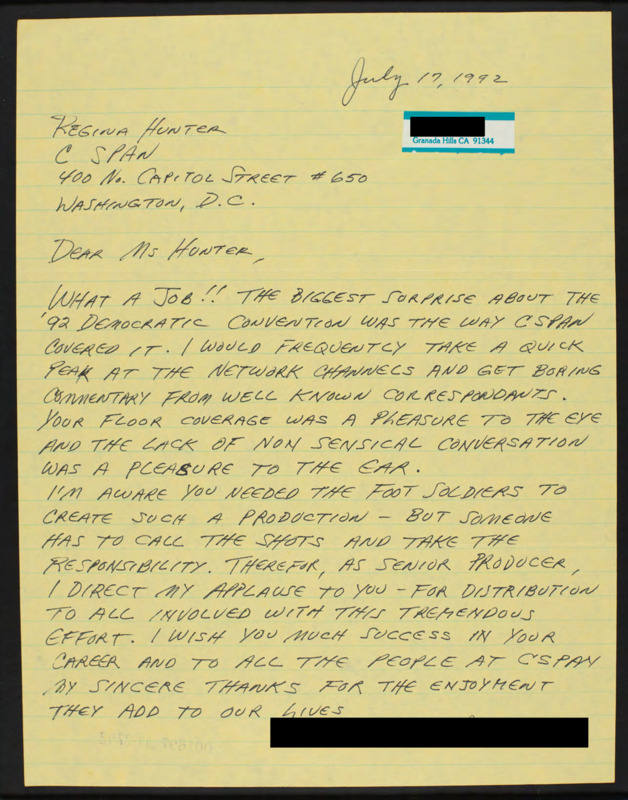 July 17, 1992
Granada Hills CA 91344
REGINA HUNTER
C SPAN
400 No. CAPITOL STREET #650
WASHINGTON, D.C.
DEAR MS HUNTER,
WHAT A JOB!! THE BIGGEST SURPRISE ABOUT THE
'92 DEMOCRATIC CONVENTION WAS THE WAY CSPAN
COVERED IT. I WOULD FREQUENTLY TAKE A QUICK
PEAK AT THE NETWORK CHANNELS AND GET BORING
COMMENTARY FROM WELL KNOWN CORRESPONDANTS.
YOUR FLOOR COVERAGE WAS A PLEASURE TO THE EYE
AND THE LACK OF NON SENSICAL CONVERSATION
WAS A PLEASURE TO THE EAR.
I'M AWARE YOU NEEDED THE FOOT SOLDIERS TO
CREATE SUCH A PRODUCTION – BUT SOMEONE
HAS TO CALL THE SHOTS AND TAKE THE
RESPONSIBILITY. THEREFOR, AS SENIOR PRODUCER,
I DIRECT MY APPLAUSE TO YOU – FOR DISTRIBUTION
TO ALL INVOLVED WITH THIS TREMENDOUS
EFFORT. I WISH YOU MUCH SUCCESS IN YOUR
CAREER AND TO ALL THE PEOPLE AT CSPAN
MY SINCERE THANKS FOR THE ENJOYMENT
THEY ADD TO OUR LIVES